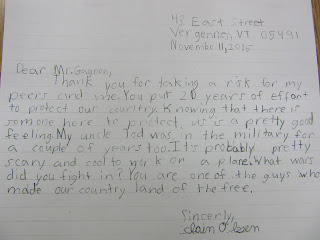 43 East Street
Vergennes, VT 05491
November 11, 2015
Dear Mr. Gagnon,
Thank you for taking a risk for my
peers and me. You put 20 years of effort
to protect our country. Knowing that there is
someone here to protect us is a pretty good
feeling. My uncle Tod was in the military for
a couple of years too. It's probably pretty
scary and cool to work on a plane. What wars
did you fight in? You are one of the guys who
made our country land of the free.
Sincerly,